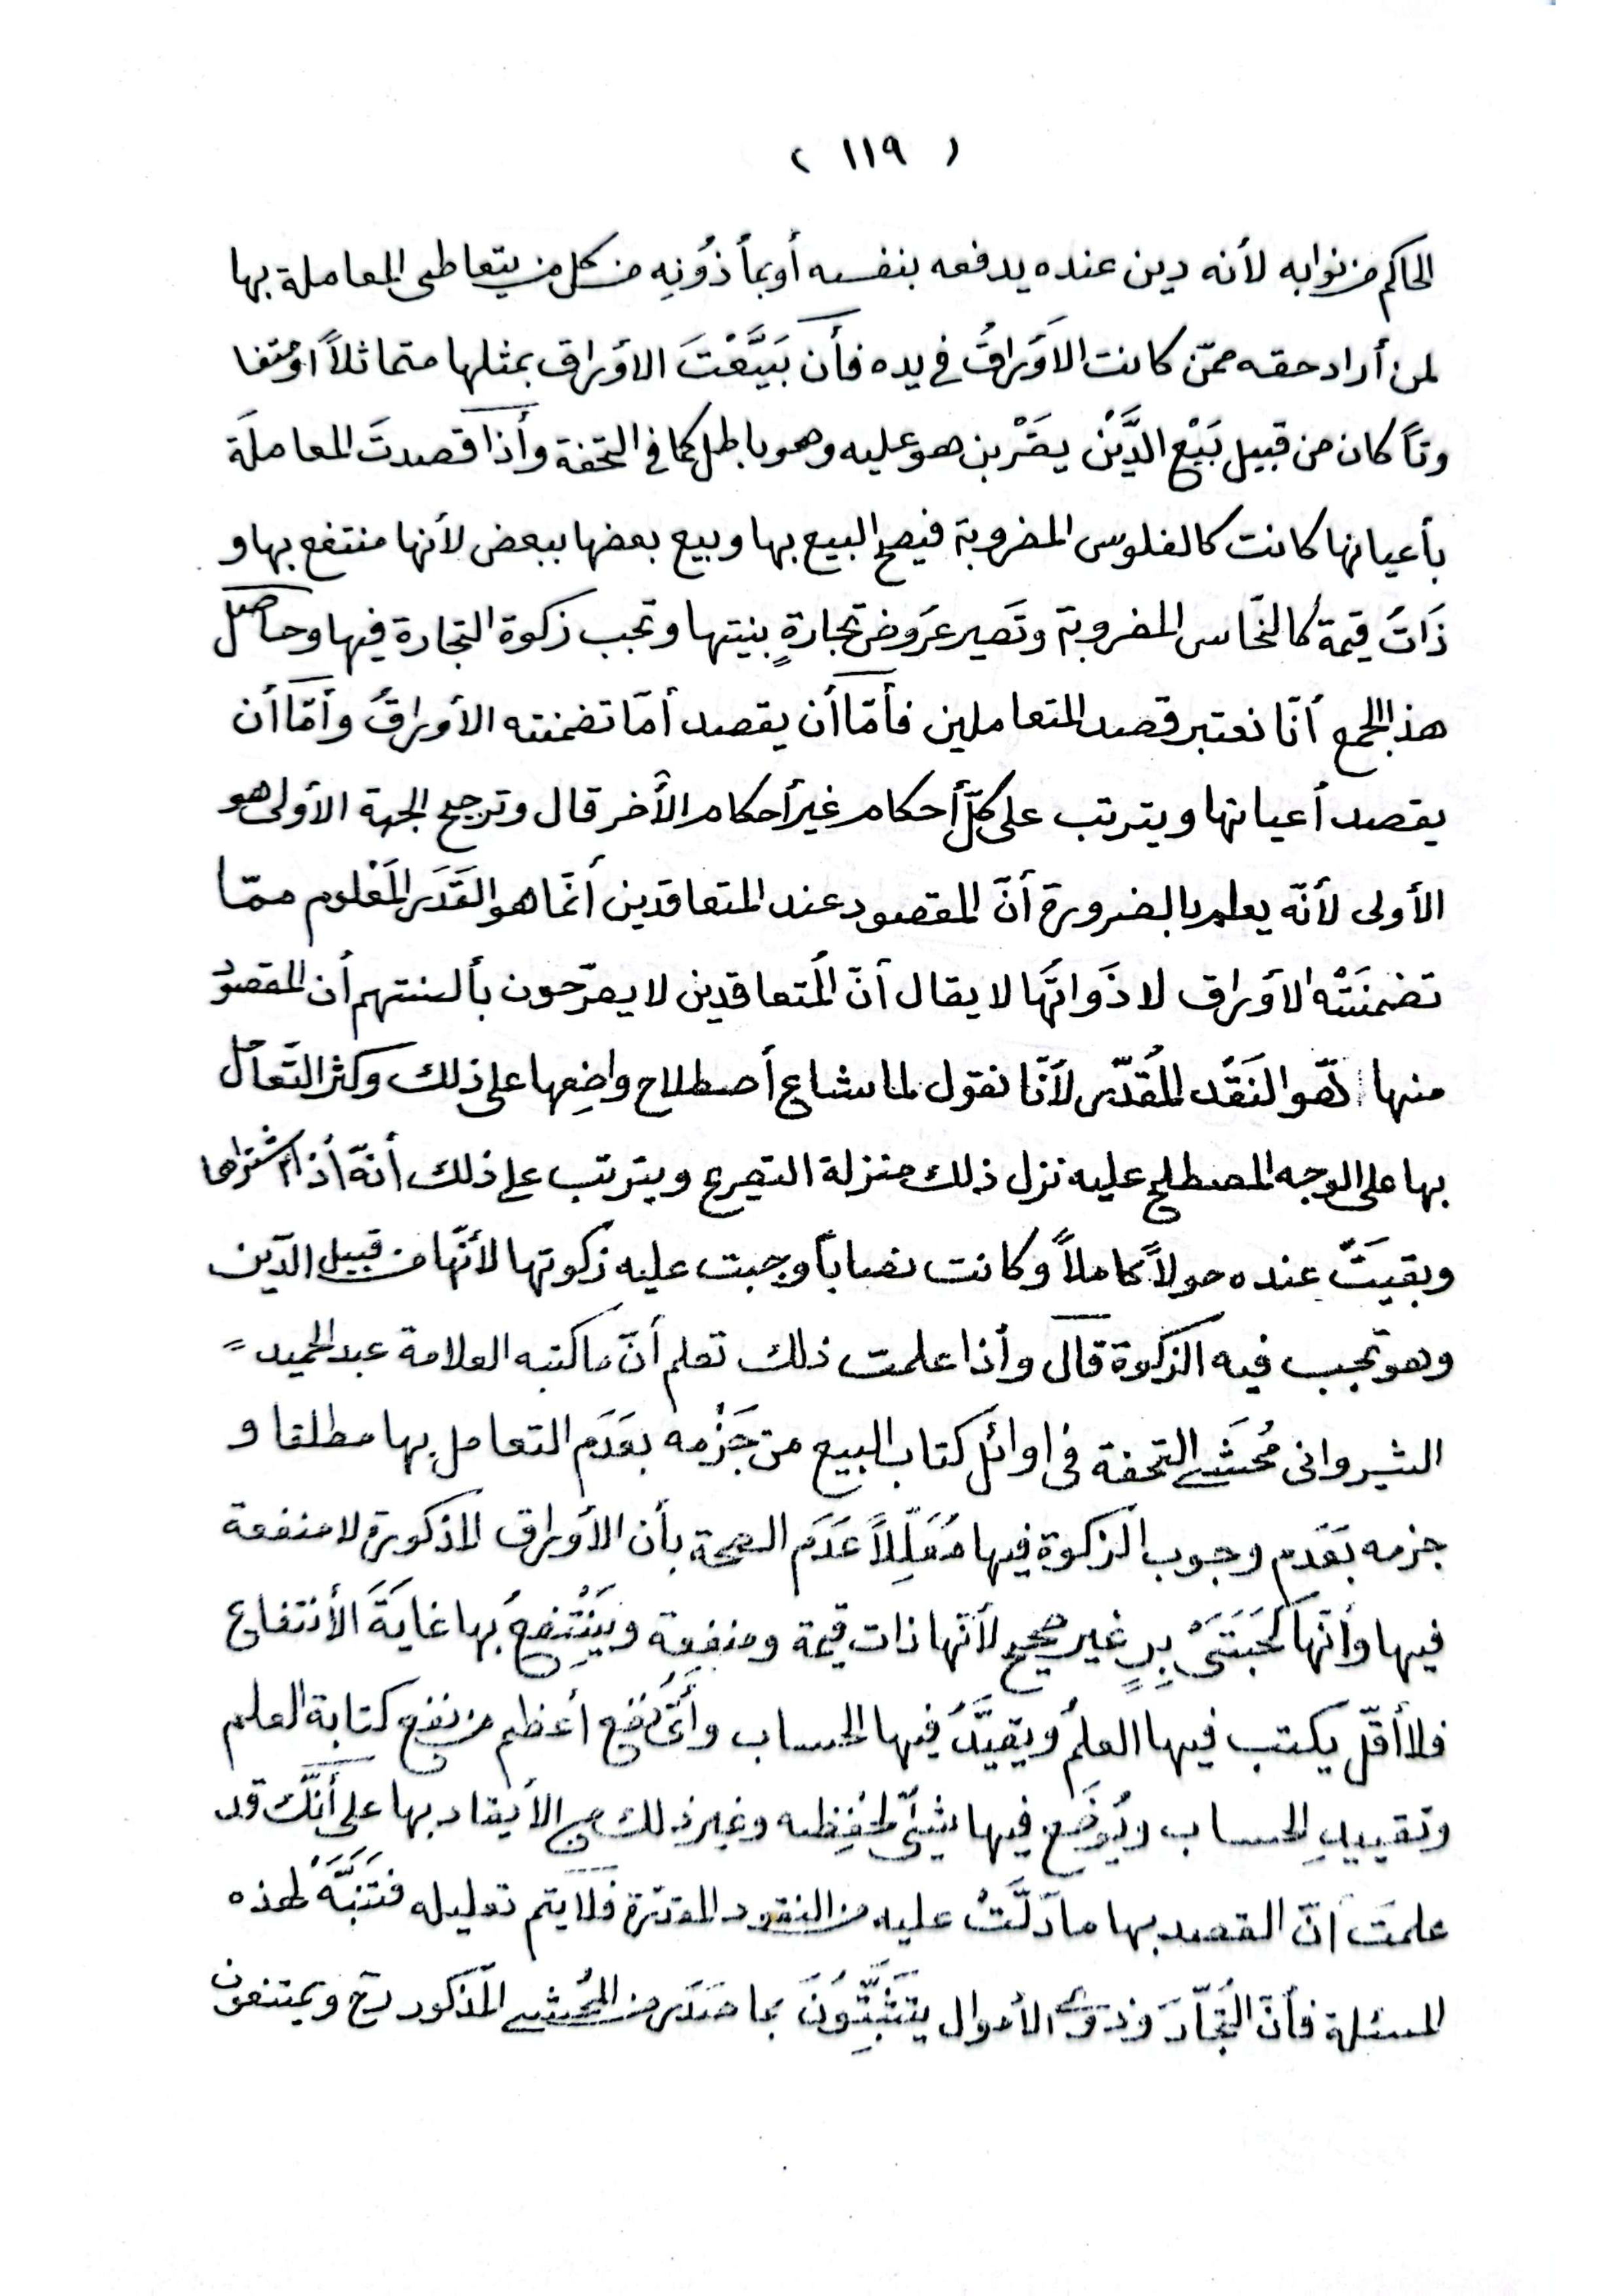 ( ١١٩ )
الحاكم من نوابه لأنه دين عنده يدفعه بنفسه أوبمأذُونِه من كل من يتعاطى المعاملة بها
لمن أراد حقه ممّن كانت الاَوَراقُ في يده فأن بَيَّعْتَ الاَوَراق بمثلها متماثلاً اومتفا
وتاً كان من قبيل بَيْع الدَّيْن بغَيْرِ من هو عليه وهو باطل كما في التحفة وأذا قصدتَ المعاملَة
بأعيانها كانت كالفلوس المضروبة فيصح البيع بها وبيع بعضها ببعض لأنها منتفع بها و
ذَاتُ قيمة كالنحّاس المضروبة وتَصير عَرَوض تجارةٍ بنيتها وتجب زكوة التجارة فيها وحاصل
هذا الجمع أنّا نعتبر قصد المتعاملين فأمّا أن يقصد أمّا تضمنته الأوراقُ وأمّا أن
يقصد أعيانها ويترتب على كلّ أحكام غير أحكام الأخر قال وترجيح الجهة الأولى هو
الأولى لأنّه يعلم بالضرورة أنّ المقصود عند المتعاقدين أنّما هو القَدَر المَعْلوم ممّا
تضمنَتْه الاَوَراق لا ذَواتُها لا يقال أنّ المُتعاقدين لا يصرّحون بألسنتهم أن المقصودُ
منها هُو النَقْد المُقدّر لأنّا نقول لما شاع أصطلاح واضِعها على ذلك وكثر التّعامُل
بها على الوجه المصطلح عليه نزل ذلك منزلة التصريح ويترتب على ذلك أنّه أذا اشتراها
وبقيَتْ عنده حولاً كاملاً وكانت نصاباً وجبت عليه زكوتها لأنّها من قبيل الدّين
وهو تجب فيه الزكوة قال وأذا علمت ذلك تعلم أنّ ما كتبه العلامة عبد الحميد
الشيرواني مُحَشّي التحفة في اوائل كتاب البيع من جَزْمه بعَدَم التعامل بها مطلقا و
جزمه بعَدَم وجوب الزكوة فيها مُعَلّلاً عَدَم الصحة بأن الأوراق المذكورة لا منفعة
فيها وأنّها كَحَبَتَيْ بِرٍ غير صحيح لأنّها ذات قيمة ومنفعة ويَنْتِفعُ بها غايَةَ الأنتفاع
فلا أقلّ يكتب فيها العلمُ ويقيَّدُ فيها الحساب وأيُّ نَفْع أعظم من نفع كتابة العلم
وتقييدِ الحساب ويُوضَع فيها شئٌ لحُفِظه وغير ذلك مع الأيقاد بها على أنّك قد
علمتَ انّ القصد بها ما دَلَّتْ عليه من النقود المقدّرة فلا يتم تعليله فتَنَبَّهْ لهذه
المسئلة فأنّ التُجّارَ وذوي الأموال يتَثَبَّتُونَ بما صَدَر من المُحشي المذكور رح ويمتنعون